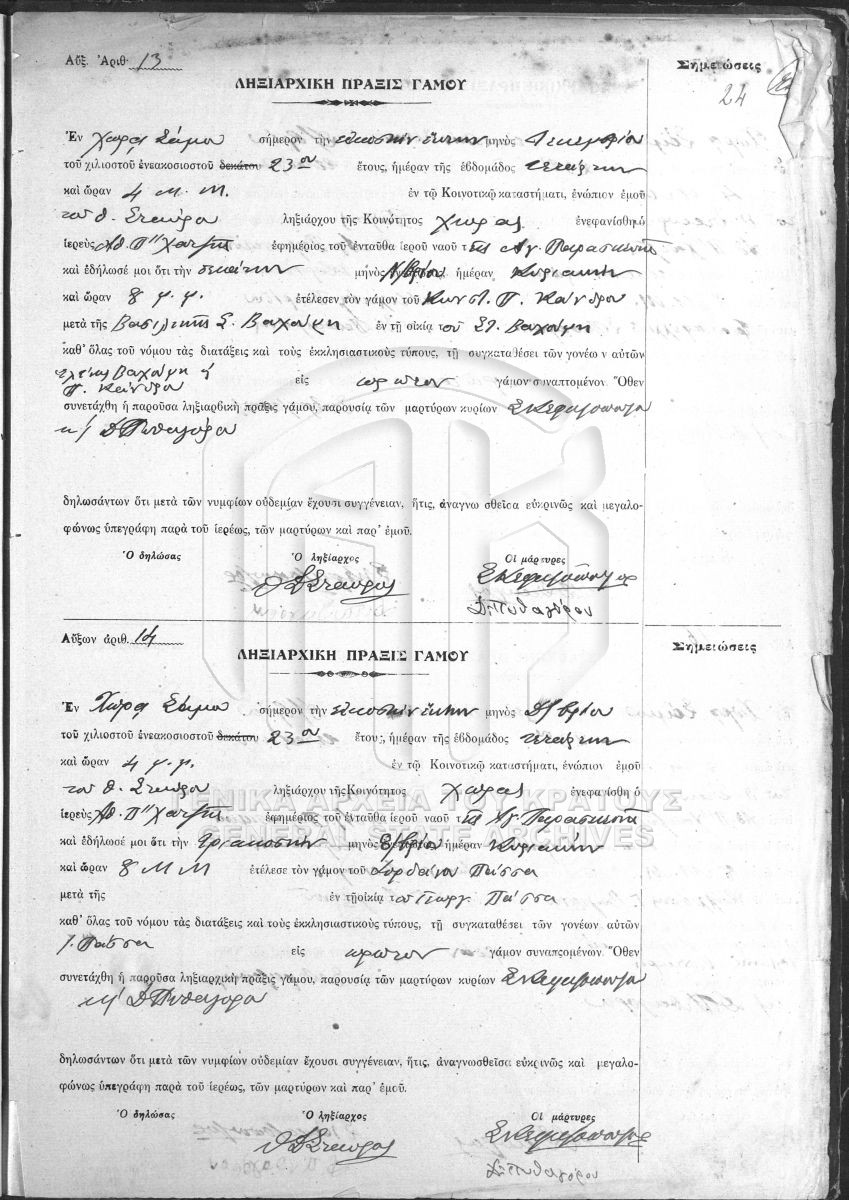 Αὔξ. Ἀριθ. 13
Σημειώσεις
24
ΛΗΞΙΑΡΧΙΚΗ ΠΡΑΞΙΣ ΓΑΜΟΥ
Ἐν Χώρᾳ Σάμου σήμερον τὴν εἰκοστὴν ἕκτην μηνὸς Δεκεμβρίου
τοῦ χιλιοστοῦ ἐνεακοσιοστοῦ δεκάτου 23ον ἔτους, ἡμέραν τῆς ἑβδομάδος τετάρτην
καὶ ὥραν 4 μ. μ. ἐν τῷ Κοινοτικῷ καταστήματι, ἐνώπιον ἐμοῦ
τοῦ Θ. Σταύρου ληξιάρχου τῆς Κοινότητος Χώρας ἐνεφανίσθη ὁ
ἱερεὺς Ἀθ. Π" Χατζῆς ἐφημέριος τοῦ ἐνταῦθα ἱεροῦ ναοῦ τῆς Ἁγ. Παρασκευῆς
καὶ ἐδήλωσέ μοι ὅτι τὴν δεκάτην μηνὸς ἡμέραν Κυριακὴν
καὶ ὥραν 8 μ. μ. ἐτέλεσεν τὸν γάμον τοῦ Κωνστ. Π.
μετὰ τῆς Βασιλικῆς Σ. ἐν τῇ οἰκίᾳ τοῦ Στ.
καθ' ὅλας τοῦ νόμου τὰς διατάξεις καὶ τοὺς ἐκκλησιαστικοὺς τύπους, τῇ συγκαταθέσει τῶν γονέων αὐτῶν
Π. εἰς πρῶτον γάμον συναπτομένον. Ὅθεν
συνετάχθη ἡ παροῦσα ληξιαρχικὴ πρᾶξις γάμου, παρουσίᾳ τῶν μαρτύρων κυρίων
Δ. Πυθαγόρα
δηλωσάντων ὅτι μετὰ τῶν νυμφίων οὐδεμίαν ἔχουσι συγγένειαν, ἥτις, ἀναγνωσθεῖσα εὐκρινῶς καὶ μεγαλο-
φώνως ὑπεγράφη παρὰ τοῦ ἱερέως, τῶν μαρτύρων καὶ παρ' ἐμοῦ.
Ὁ δηλώσας Ὁ ληξίαρχος Οἱ μάρτυρες
Σταύρος
Δ. Πυθαγόρου
Αὔξων ἀριθ. 14
Σημειώσεις
ΛΗΞΙΑΡΧΙΚΗ ΠΡΑΞΙΣ ΓΑΜΟΥ
Ἐν Χώρᾳ Σάμου σήμερον τὴν εἰκοστὴν ἕκτην μηνὸς Δ/βρίου
τοῦ χιλιοστοῦ ἐνεακοσιοστοῦ δεκάτου 23ον ἔτους, ἡμέραν τῆς ἑβδομάδος τετάρτην
καὶ ὥραν 4 μ. μ. ἐν τῷ Κοινοτικῷ καταστήματι, ἐνώπιον ἐμοῦ
τοῦ Θ. Σταύρου ληξιάρχου τῆς Κοινότητος Χώρας ἐνεφανίσθη ὁ
ΓΕΝΙΚΑ ΑΡΧΕΙΑ ΤΟΥ ΚΡΑΤΟΥΣ
ἱερεὺς Ἀθ. Π" Χατζῆς ἐφημέριος τοῦ ἐνταῦθα ἱεροῦ ναοῦ τῆς Ἁγ. Παρασκευῆς
GENERAL STATE ARCHIVES
καὶ ἐδήλωσέ μοι ὅτι τὴν τριακοστὴν μηνὸς ἡμέραν Κυριακὴν
καὶ ὥραν 8 μ μ ἐτέλεσε τὸν γάμον τοῦ Ἰορδάνου Πάσσα
μετὰ τῆς ἐν τῇ οἰκίᾳ τοῦ Γεωργ. Πάσσα
καθ' ὅλας τοῦ νόμου τὰς διατάξεις καὶ τοὺς ἐκκλησιαστικοὺς τύπους, τῇ συγκαταθέσει τῶν γονέων αὐτῶν
Γ. Πάσσα εἰς πρῶτον γάμον συναπτομένων. Ὅθεν
συνετάχθη ἡ παροῦσα ληξιαρχικὴ πρᾶξις γάμου, παρουσίᾳ τῶν μαρτύρων κυρίων
Δ. Πυθαγόρα
δηλωσάντων ὅτι μετὰ τῶν νυμφίων οὐδεμίαν ἔχουσι συγγένειαν, ἥτις, ἀναγνωσθεῖσα εὐκρινῶς καὶ μεγαλο-
φώνως ὑπεγράφη παρὰ τοῦ ἱερέως, τῶν μαρτύρων καὶ παρ' ἐμοῦ.
Ὁ δηλώσας Ὁ ληξίαρχος Οἱ μάρτυρες
Σταύρος